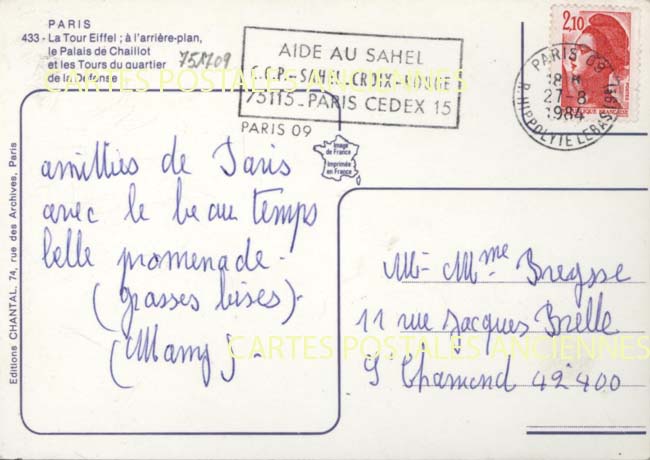 PARIS
433 - La Tour Eiffel ; à l'arrière-plan,
le Palais de Chaillot
et les Tours du quartier
de la Défense
751709
AIDE AU SAHEL
C.C.P. SAHEL.CROIX-ROUGE
75115 - PARIS CEDEX 15
PARIS 09
2,10
PARIS 09
18 H
27-8
1984
R. HIPPOLYTE LEBAS (9e)
Image
de France
Imprimée
en France
amitiés de Paris
avec le beau temps
belle promenade.
(grosses bises).
(Mamy).
Mr Mme Breysse
11 rue Jacques Brelle
St Chamond 42400
Editions CHANTAL, 74, rue des Archives, Paris
CARTES POSTALES ANCIENNES
CARTES POSTALES ANCIENNES